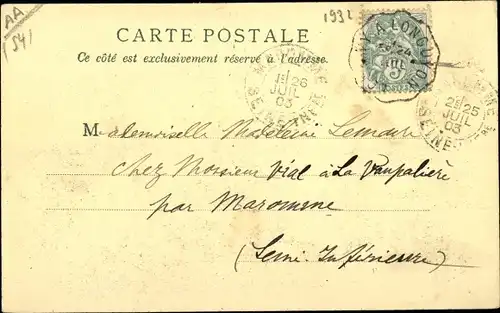 AA
(54)
1932
CARTE POSTALE
Ce côté est exclusivement réservé à l'adresse.
A LONGUYON
JUIL
26
JUIL
03
SEINE
25
JUIL
03
SEINE
Mademoiselle Madeleine Lemaire
chez Monsieur Vial à La Vaupalière
par Maromme
(Seine Inférieure)